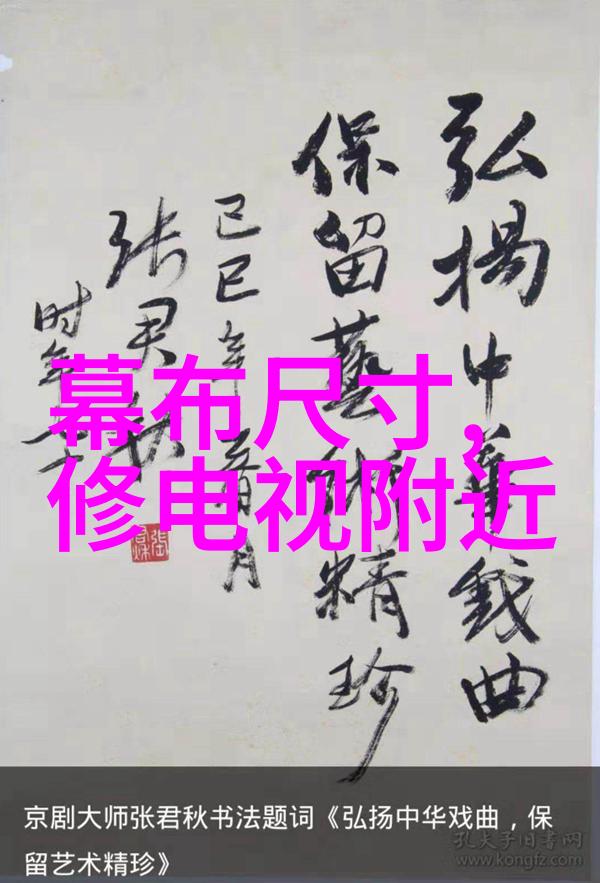 弘揚中華戲曲
保留藝術精珍
己巳年春月
张君秋
时年七十
幕布尺寸，
修电视附近
京剧大师张君秋书法题词《弘扬中华戏曲，保
留艺术精珍》
孔夫子旧书网
www.kongfz.com